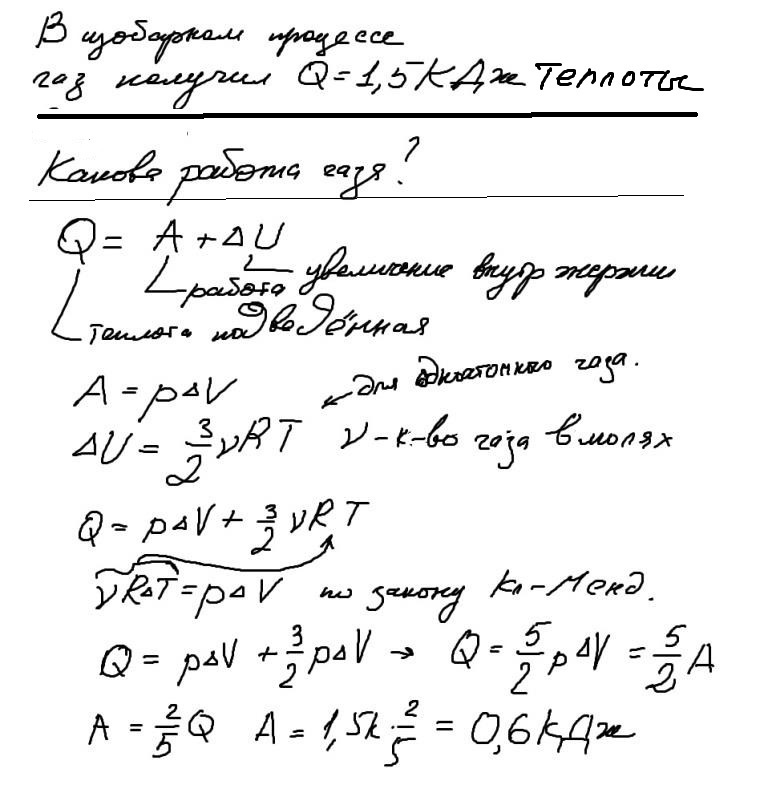 В изобарном процессе
газ получил Q=1,5КДж Теплоты
Какова работа газа?
Q = A + ΔU
увеличение внутр энергии
работа
теплота подведённая
A = pΔV
для одноатомного газа.
ΔU = 3/2 νRT ν-к-во газа в молях
Q = pΔV + 3/2 νRT
νRΔT = pΔV по закону Кл-Менд.
Q = pΔV + 3/2 pΔV → Q = 5/2 pΔV = 5/2 A
A = 2/5 Q A = 1,5к·2/5 = 0,6КДж